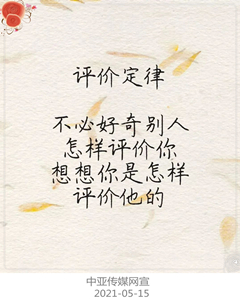 评价定律
不必好奇别人
怎样评价你
想想你是怎样
评价他的
中亚传媒网宣
2021-05-15